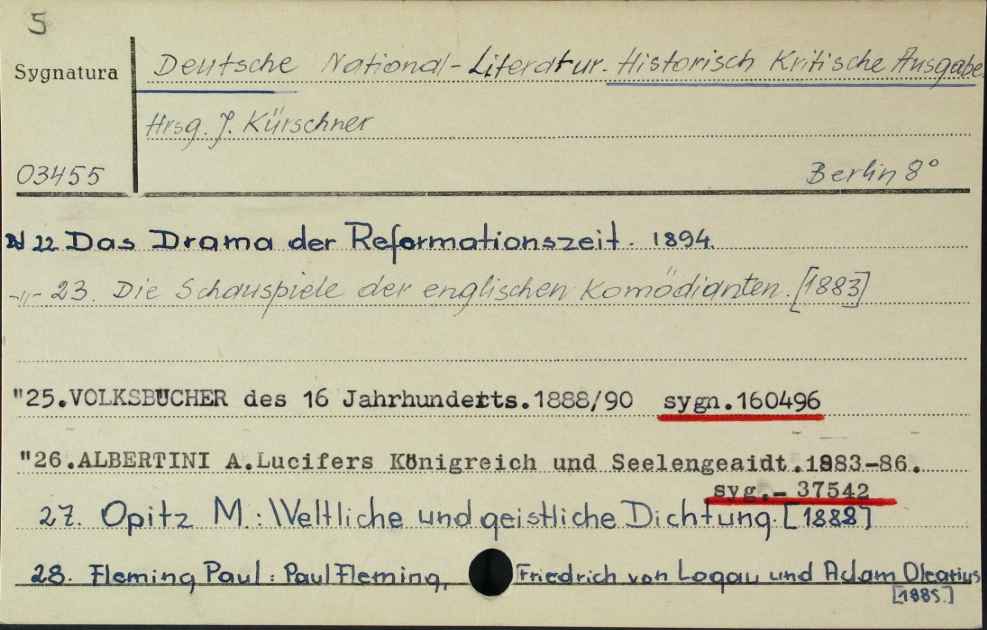 5
Sygnatura
Deutsche National-Literatur. Historisch Kritische Ausgabe.
Hrsg. J. Kürschner
03455
Berlin 8°
N 22 Das Drama der Reformationszeit. 1894.
-"- 23. Die Schauspiele der englischen Komödianten. [1883]
"25.VOLKSBUCHER des 16 Jahrhunderts.1888/90 sygn.160496
"26.ALBERTINI A.Lucifers Königreich und Seelengeaidt.1983-86.
syg.- 37542
27. Opitz M.: Weltliche und geistliche Dichtung. [1888]
28. Fleming Paul: Paul Fleming, Friedrich von Logau und Adam Olearius
[1885.]